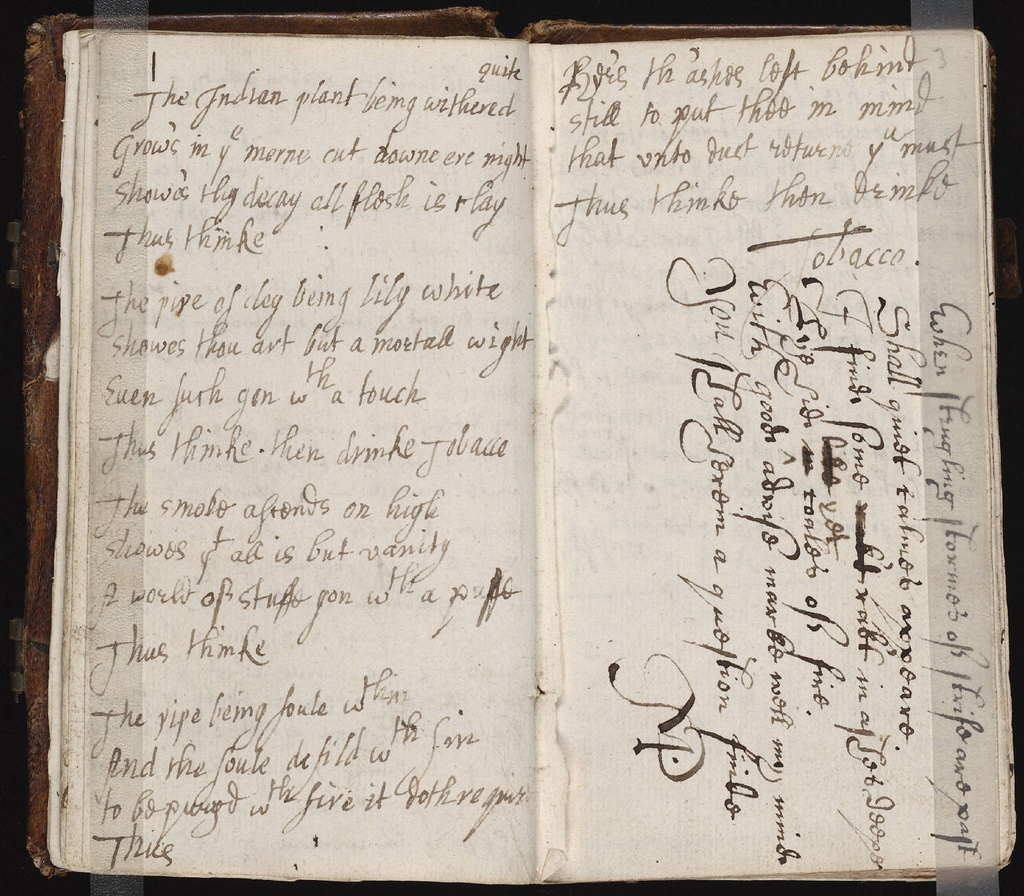 1
quite
The Indian plant being withered
Grow's in yͤ morne cut downe ere night
Showes thy decay all flesh is clay
Thus thinke
The pipe of cley being lily white
Showes thou art but a mortall wight
Euen such gon wᵗʰ a touch
Thus thinke then drinke Tobacco
The smoke ascends on high
Showes yᵗ all is but vanity
A world of stuffe gon wᵗʰ a puffe
Thus thinke
The pipe being foule wᵗʰin
And the soule defild wᵗʰ sin
to be purged wᵗʰ fire it doth requir
Thus
th'ashes left behind
still to put thee in mind
that vnto dust returne yᵘ must
Thus thinke then drinke
Tobacco.
3
When strugling stormes of strife are past
Shall quiet calmes appeare.
I find some in ashes deepe
of fire.
With good advise marke well my mind
You shall herein a question finde